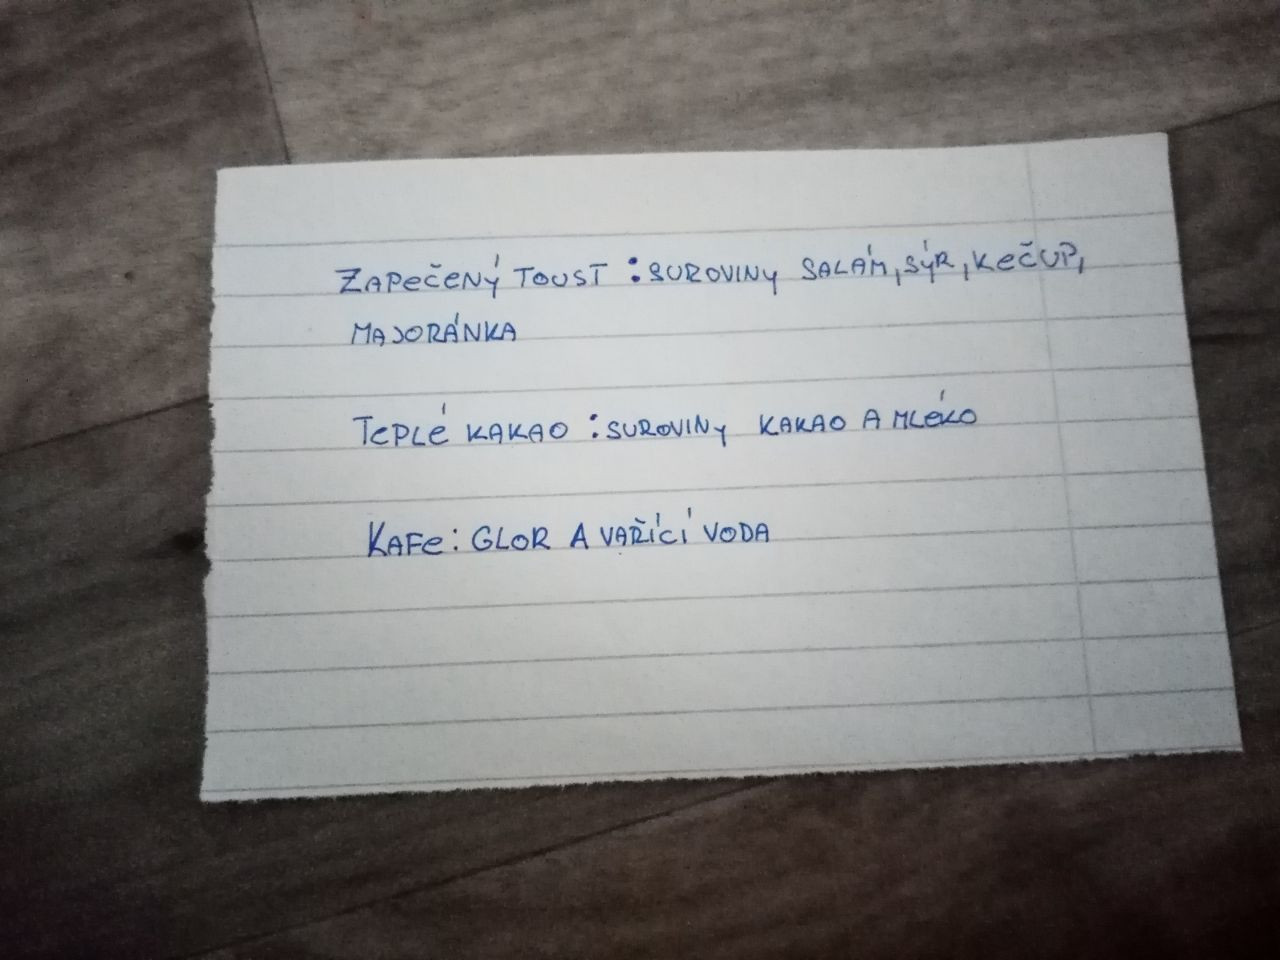 ZAPEČENÝ TOUST : SUROVINY SALÁM, SÝR, KEČUP,
MAJORÁNKA
TEPLÉ KAKAO : SUROVINY KAKAO A MLÉKO
KAFE: GLOR A VAŘÍCÍ VODA